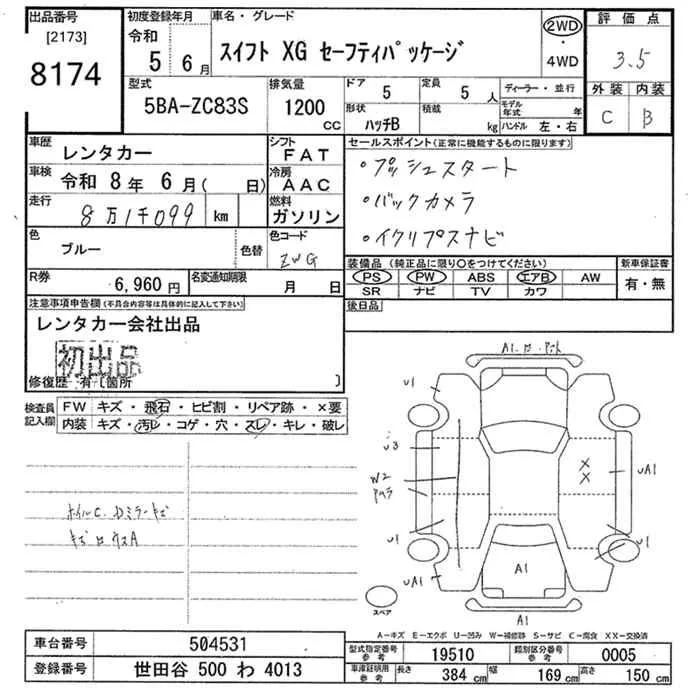 出品番号
[2173]
8174
初度登録年月
令和
5 6月
車名・グレード
スイフト XG セーフティパッケージ
2WD
・
4WD
評価点
3.5
外装 内装
C B
型式
5BA-ZC83S
排気量
1200
cc
ドア 5
定員 5 人
形状 ハッチB
積載 kg
ディーラー・並行
モデル年式 年
ハンドル 左・右
車歴 レンタカー
シフト FAT
車検 令和 8年 6月( 日)
冷房 AAC
走行 8万1千099 km
燃料 ガソリン
色 ブルー 色替
色コード ZWG
R券 6,960円
名変通知期限 月 日
セールスポイント(正常に機能するものに限ります)
・プッシュスタート
・バックカメラ
・イクリプスナビ
装備品(純正品に限り○をつけてください)
PS PW ABS エアB AW
SR ナビ TV カワ
新車保証書
有・無
後日品
注意事項申告欄(不具合内容等は具体的に記入して下さい)
レンタカー会社出品
初出品
修復歴 有〔箇所 〕
検査員記入欄
FW キズ・飛石・ヒビ割・リペア跡・×要
内装 キズ・汚レ・コゲ・穴・スレ・キレ・破レ
ホイルC.Dミラーキズ
A1
U1
U1
U3
W2
X
X
UA1
U1
U1
UA1
A1
A1
スペア
A-キズ E-エクボ U-凹み W-補修跡 S-サビ C-腐食 XX-交換済
車台番号 504531
登録番号 世田谷 500 わ 4013
型式指定番号 参考 19510
類別区分番号 参考 0005
車庫証明用 参考 長さ 384 cm 幅 169 cm 高さ 150 cm